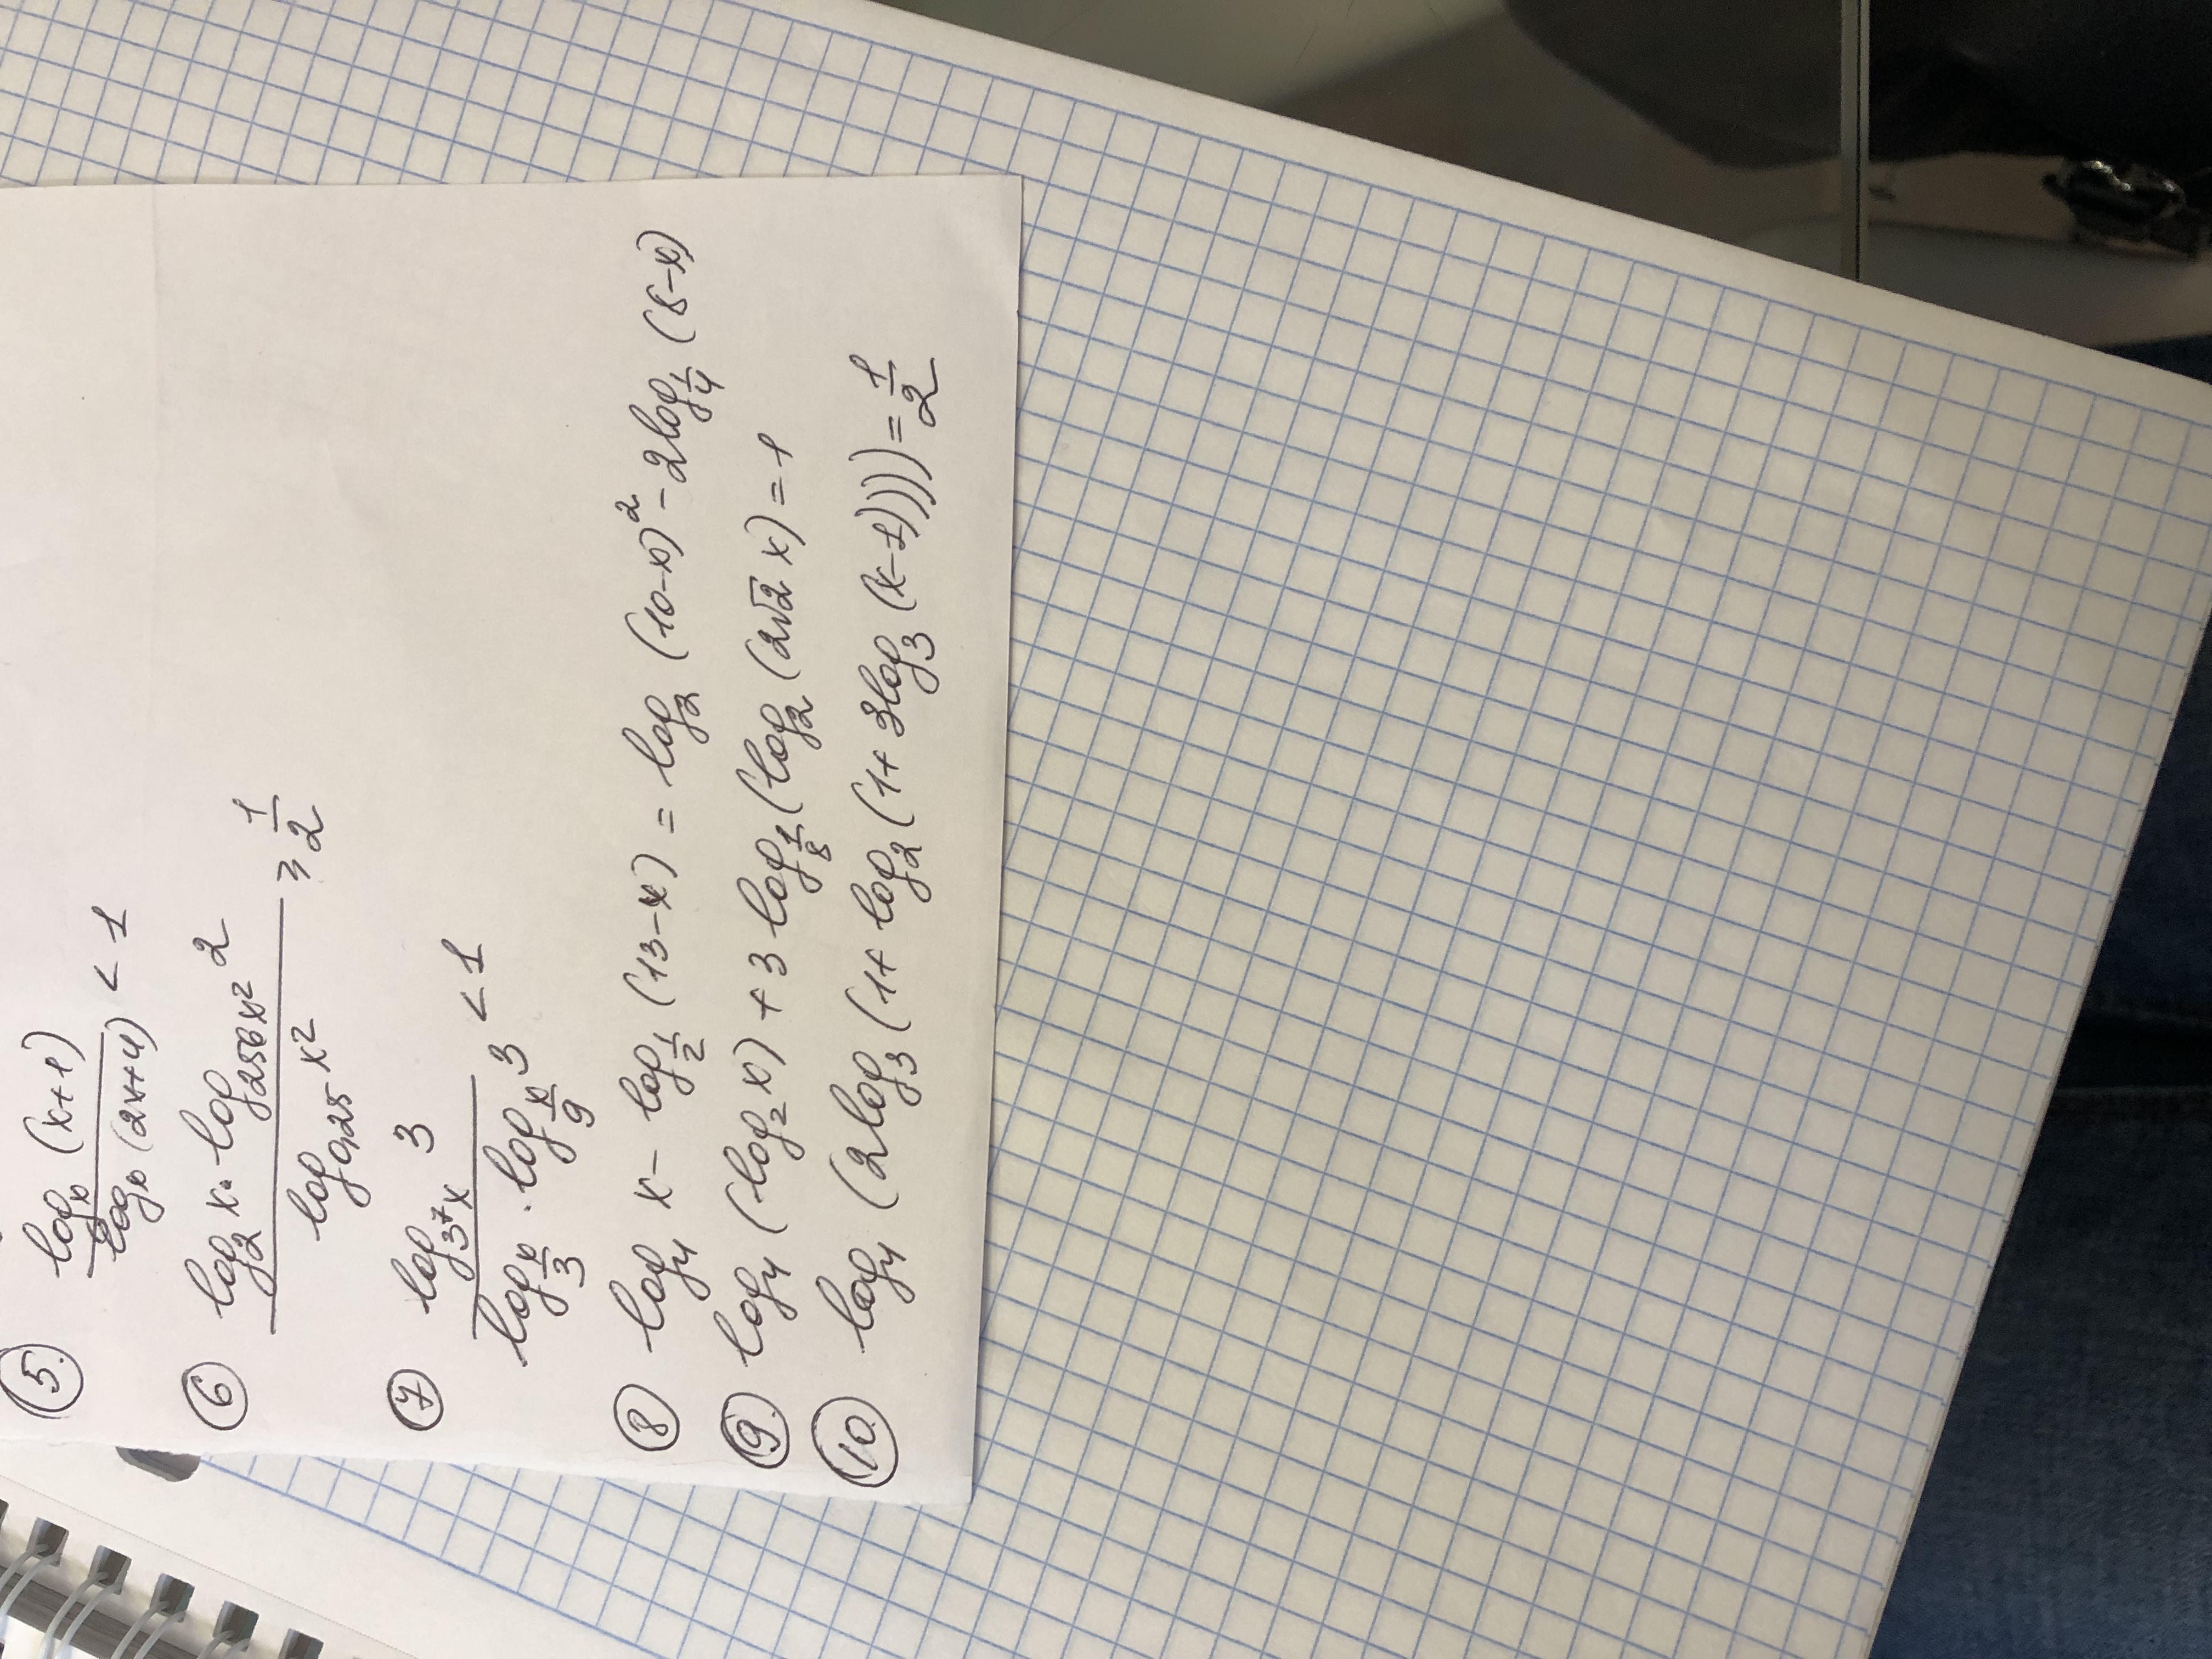 5. log_x (x+1) / log_x (2x+4) < 1
6 log_2 x · log_{256x²} 2 / log_{0,25} x² ≥ 1/2
7 log_{3⁷x} 3 / log_{x/3} · log_{x/9} 3 < 1
8 log_4 x - log_{1/2} (13-x) = log_2 (10-x)² - 2log_{1/4} (8-x)
9. log_4 (log_2 x) + 3 log_{1/8} (log_2 (2√2 x) = 1
10. log_4 (2log_3 (1+ log_2 (1+ 3log_3 (x-1)))) = 1/2